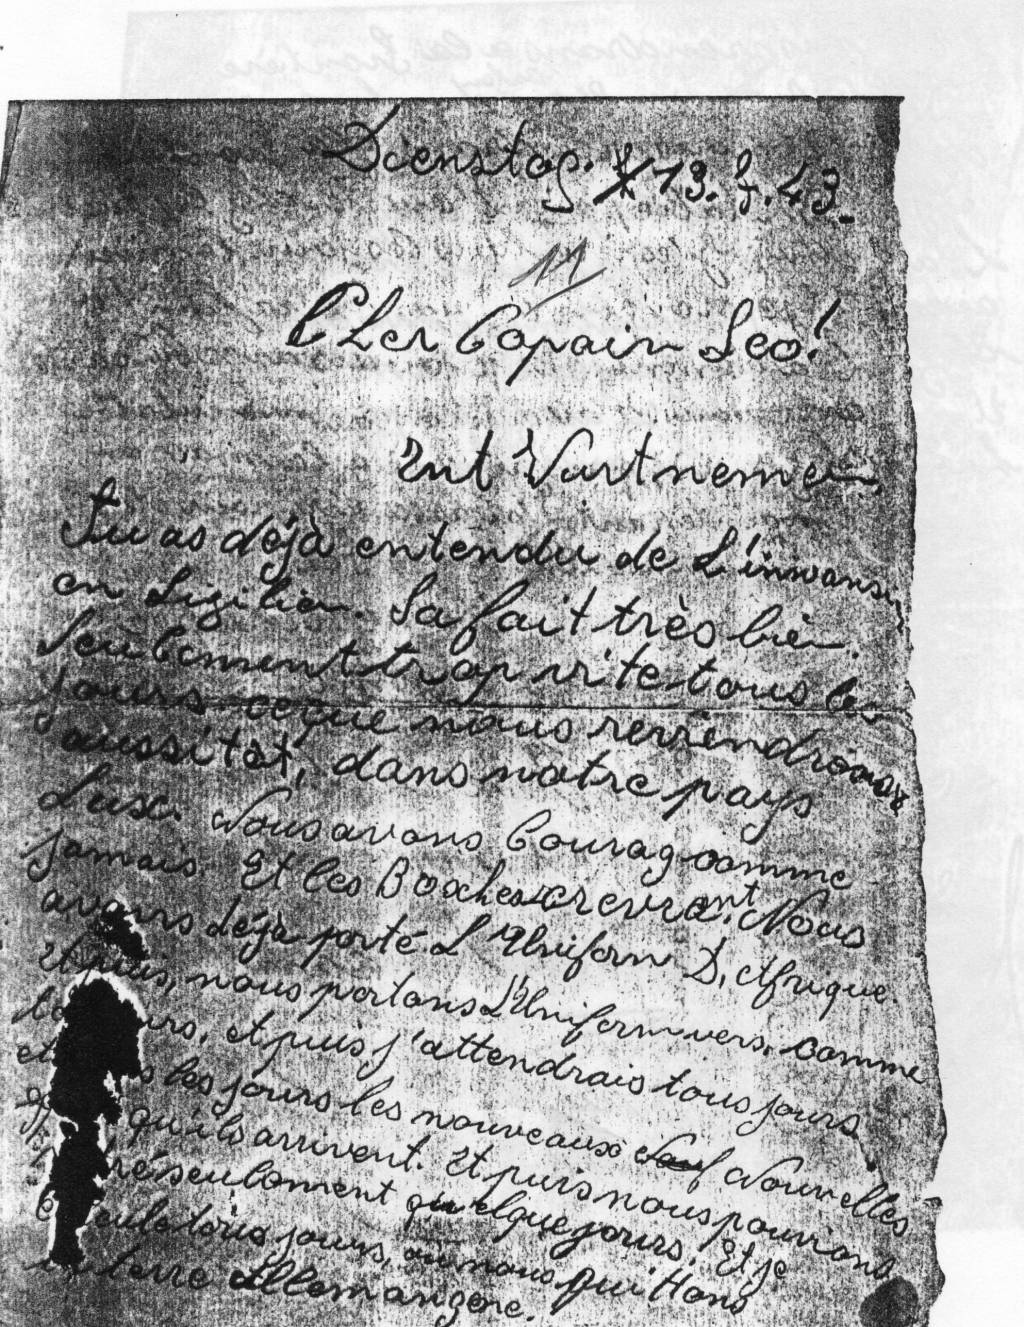 Dienstag. 13. 7. 43.
11
CHer Copain Leo!
Ent Vurtnemen
Tu as déjà entendu de L'inwans
en Sizilien. Sa fait très bien.
Seulement trop vite tous les
jours ce que nous reviendrons
aussitôt, dans notre pays
Lux. Nous avons Courag comme
jamais. Et les Boches crevrant. Nous
avons déjà porté L'Uniform D, Afrique.
et puis, nous portons L'Uniform vers, comme
et puis j'attendrais tous jours
les jours les nouveaux Nouvelles
qu'ils arrivent. Et puis nous pouvions
seulement quelque jours. Et je
tous jours, où nous quittons
terre allemangne.